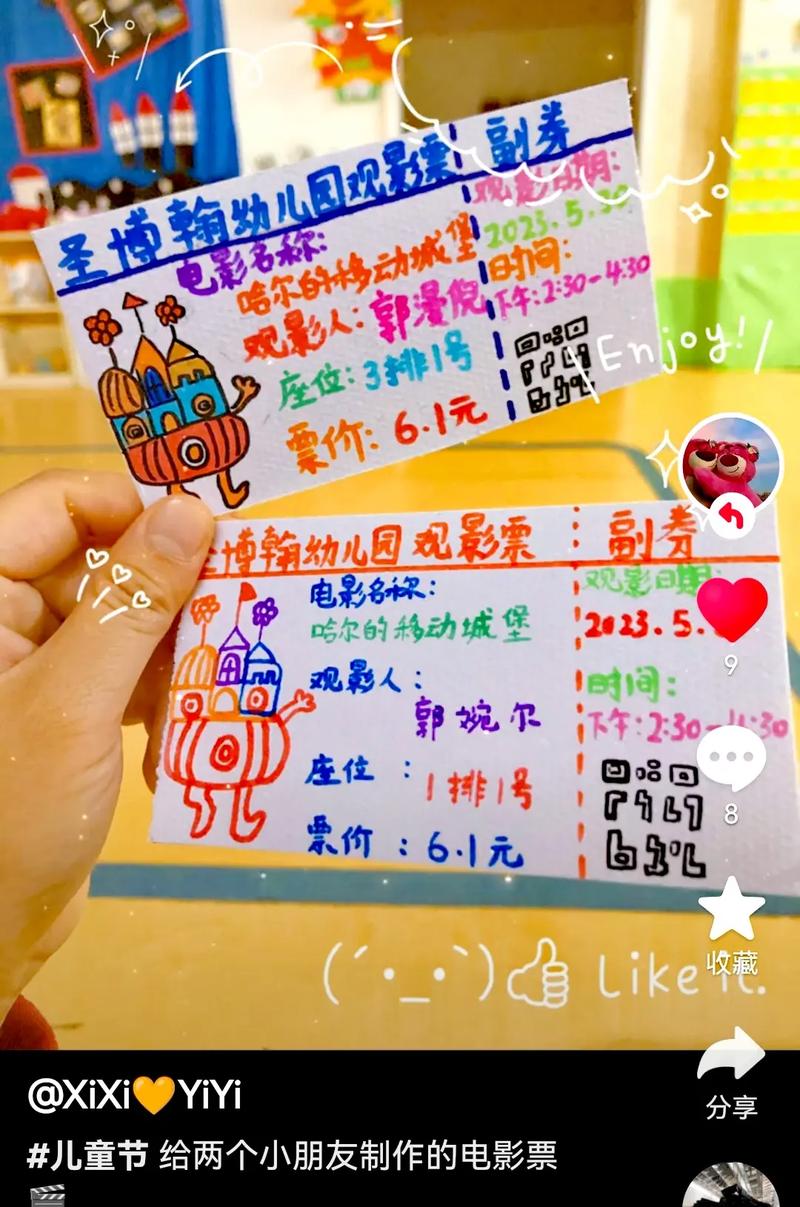 圣博翰幼儿园观影票 副券
电影名称:
哈尔的移动城堡
观影人: 郭漫倪
座位: 3排1号
票价: 6.1元
观影日期:
2023.5.30
时间:
下午: 2:30-4:30
Enjoy!
博翰幼儿园 观影票 副券
电影名称:
哈尔的移动城堡
观影人:
郭婉尔
座位:
1排1号
票价: 6.1元
观影日期:
2023.5.
时间:
下午: 2:30-4:30
9
8
收藏
Like it.
分享
@XiXi🧡YiYi
#儿童节 给两个小朋友制作的电影票